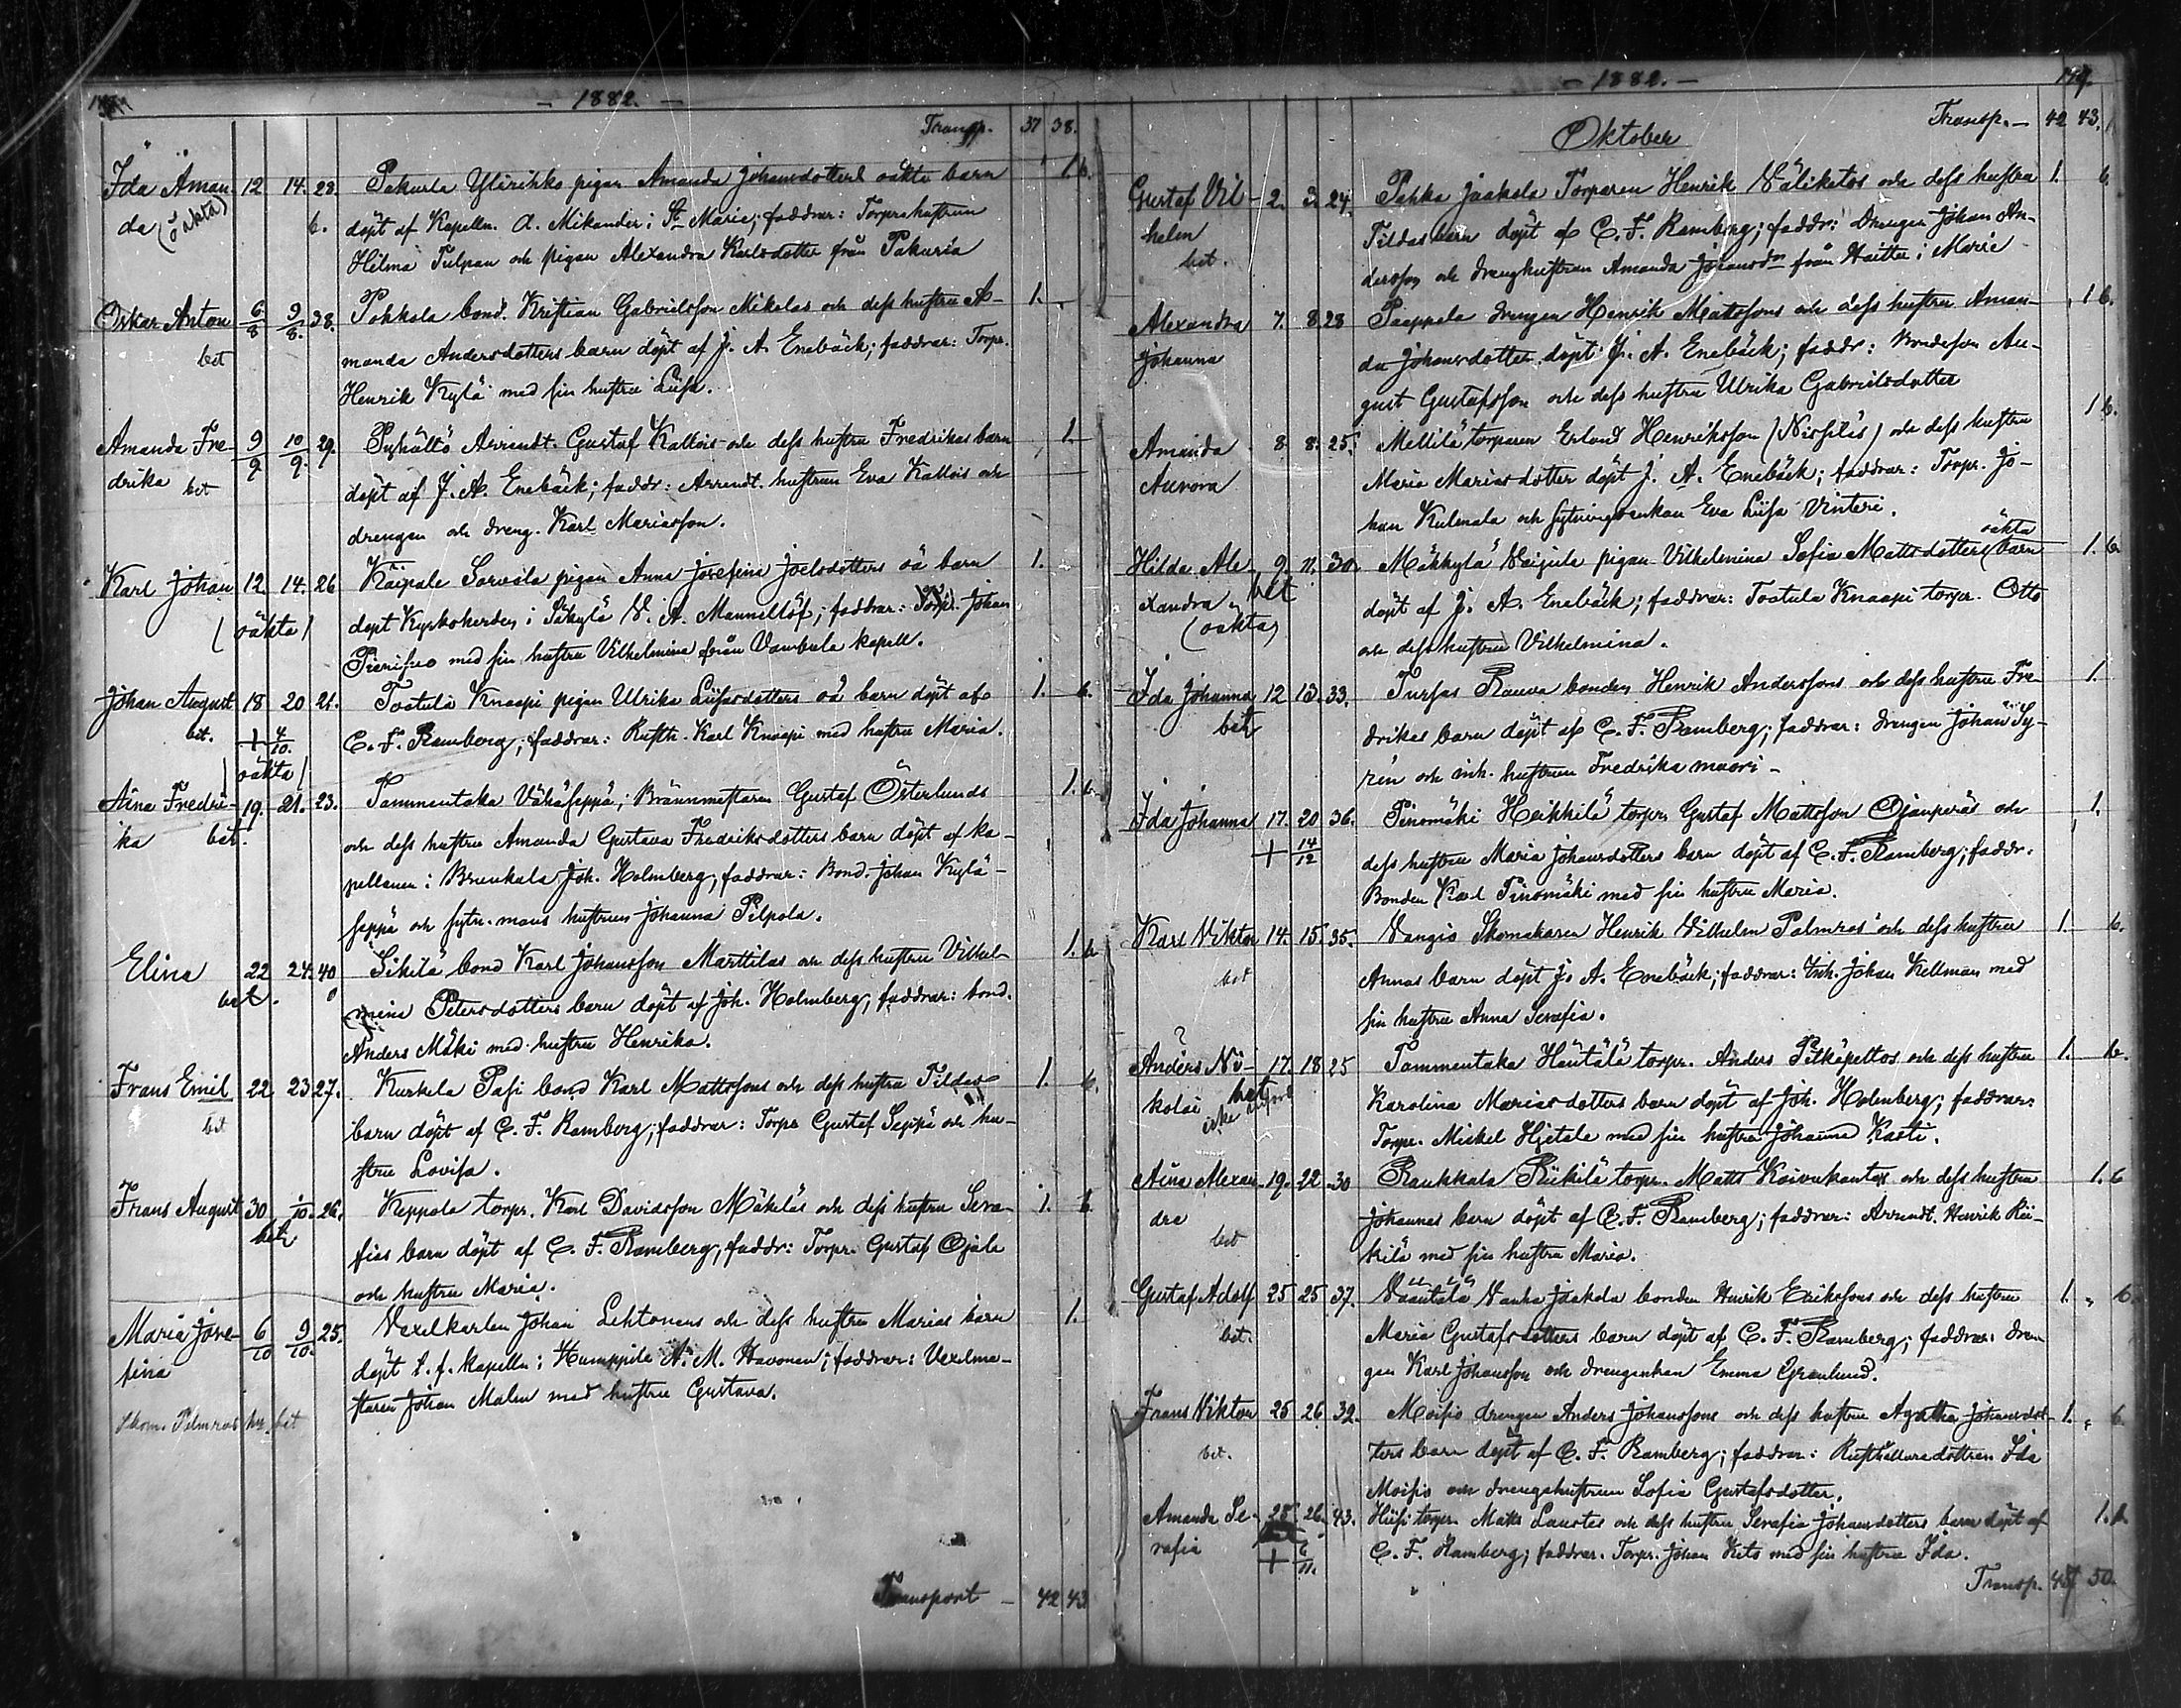 - 1882. -
Transp. 37 38.
Ida Aman 12 14. 28. Pakurla Ylirihko pigan Amanda Johansdotters oäkta barn 1 b.
da (oäkta) 6. döpt af Kapelln. A. Mikander i St Marie; faddrar: Torparehustrun
Hilma Tulpan och pigan Alexandra Karlsdotter från Pakurla
Oskar Anton 6/8 9/8. 38. Pohkola bond. Kristian Gabrielsson Mikolas och dess hustru A- 1.
bet manda Andersdotters barn döpt af J. A. Enebäck; faddrar: Torpr.
Henrik Kylä med sin hustru Liisa.
Amanda Fre- 9/9 10/9. 29. Pyhältö Arrendt. Gustaf Kallois och dess hustru Fredrikas barn 1.
drika bet döpt af J. A. Enebäck; faddr: Arrendt. hustrun Eva Kallois och
drengen och dreng. Karl Mariasson.
Karl Johan 12 14. 26 Kaipale Sorvala pigan Anna Josefina Joelsdotters oä barn 1.
(oäkta) döpt Kyrkoherden i Säkylä V. A. Mannelöf; faddrar: Torpr. Johan
med sin hustru Vilhelmina från Vambula kapell.
Johan August 18 20 21. Tostula Knaapi pigan Ulrika Liisasdotters oä barn döpt af 1. b.
bet. + 4/10. C. F. Ramberg; faddrar: Rusth. Karl Knaapi med hustru Maria.
(oäkta)
Aina Fredri- 19. 21. 23. Tammentaka Vähäseppä, Brännmestaren Gustaf Österlunds 1. b.
ka bet. och dess hustru Amanda Gustava Fredriksdotters barn döpt af ka-
pellanen i Brunkala Joh. Holmberg; faddrar: Bond. Johan Kylä-
seppä och sytn. mans hustrun Johanna Pilpola.
Elina 22 24. 40 Sikilä bond Karl Johansson Marttilas och dess hustru Vilhel- 1. b
bet. mina Petersdotters barn döpt af Joh. Holmberg; faddrar: bond.
Anders Mäki med hustru Henrika.
Frans Emil 22 23 27. Kurkela Pasi bond Karl Mattssons och dess hustru Tildas 1. b.
bet barn döpt af C. F. Ramberg; faddrar: Torpr Gustaf Seppä och hu-
stru Lovisa.
Frans August 30 1/10. 26. Keppola torpr. Karl Davidsson Mäkeläs och dess hustru Sera- 1. b.
bet fias barn döpt af C. F. Ramberg; faddr: Torpr. Gustaf Ojala
och hustru Maria.
Maria Jose- 6/10 9/10. 25. Vexelkarlen Johan Lehtonens och dess hustru Marias barn 1.
fina döpt t. f. kapelln i Humppila A. M. Havonen; faddrar: Vexelma-
staren Johan Malm med hustru Gustava.
Skom. Palmros bet
Transport - 42 43
- 1882. -
Transp. - 42 43.
Oktober
Gustaf Vil- 2. 3. 24. Pahka Jaakola Torparen Henrik Välikotos och dess hustru 1. b.
helm Tildas barn döpt af C. F. Ramberg; faddr: Drengen Johan An-
bet. dersson och drenghustrun Amanda Johansdr från Haitta i Marie
Alexandra 7. 8. 28 Paappala drengen Henrik Mattssons och dess hustru Aman- 1 b.
Johanna da Johansdotter döpt J. A. Enebäck; faddr: Bondeson Au-
gust Gustafsson och dess hustru Ulrika Gabrielsdotter
Amanda 8 8. 25. Mellilä torparen Erland Henriksson (Nissiläs) och dess hustru 1 b.
Aurora Maria Mariasdotter döpt J. A. Enebäck; faddrar: Torpr. Jo-
han Kulmala och sytningsenkan Eva Liisa Vinteri.
Hilda Ale- 9. 11. 30. Mäkkylä pigan Vilhelmina Sofia Mattsdotters oäkta barn 1. b
xandra bet döpt af J. A. Enebäck; faddrar: Tostula Knaapi torpr. Otto
(oäkta) och dess hustru Vilhelmina.
Ida Johanna 12 13. 33. Tursas Rauva bonden Henrik Anderssons och dess hustru Fre- 1.
bet drikas barn döpt af C. F. Ramberg; faddrar: drengen Johan Sy-
rén och inh. hustrun Fredrika -
Ida Johanna 17. 20 36. Pinomäki Heikkilä torpr. Gustaf Mattsson Ojanperäs och 1.
+ 14/12 dess hustru Maria Johansdotters barn döpt af C. F. Ramberg; faddr.
Bonden Karl Pinomäki med sin hustru Maria.
Karl Viktor 14. 15. 35. Vangio Skomakaren Henrik Vilhelm Palmros och dess hustru 1. b.
bet Annas barn döpt J. A. Enebäck; faddrar: Inh. Johan Kellman med
sin hustru Anna Serafia.
Anders Ni- 17. 18 25 Tammentaka Häntälä torpr. Anders Pitkäpeltos och dess hustru 1. b.
kolai bet Karolina Mariasdotters barn döpt af Joh. Holmberg; faddrar:
Torpr. Mickel Hjetala med sin hustru Johanna Kaeti.
Aina Alexan- 19. 22 30 Raukkala Riikilä torpr. Matts Koivukantas och dess hustru 1. b
dra Johannas barn döpt af C. F. Ramberg; faddrar: Arrendt. Henrik Rii-
bet kilä med sin hustru Maria.
Gustaf Adolf 25 25 37. Väätälä Vanha Jaakola bonden Henrik Erikssons och dess hustru 1. b.
bet. Maria Gustafsdotters barn döpt af C. F. Ramberg; faddrar: dren
gen Karl Johansson och drengenkan Emma Granlund.
Frans Viktor 25 26 32. Moisio drengen Anders Johanssons och dess hustru Agatha Johansdot- 1. b.
bet. ters barn döpt af C. F. Ramberg; faddrar: Rusthållaredottren Ida
Moisio och drengehustrun Sofia Gustafsdotter.
Amanda Se- 25. 26. 43. Hiisi torpr. Matts Laustes och dess hustru Serafia Johansdotters barn döpt af 1. b.
rafia + 6/11. C. F. Ramberg; faddrar. Torpr. Johan Keto med sin hustru Ida.
Transp. 48 50.